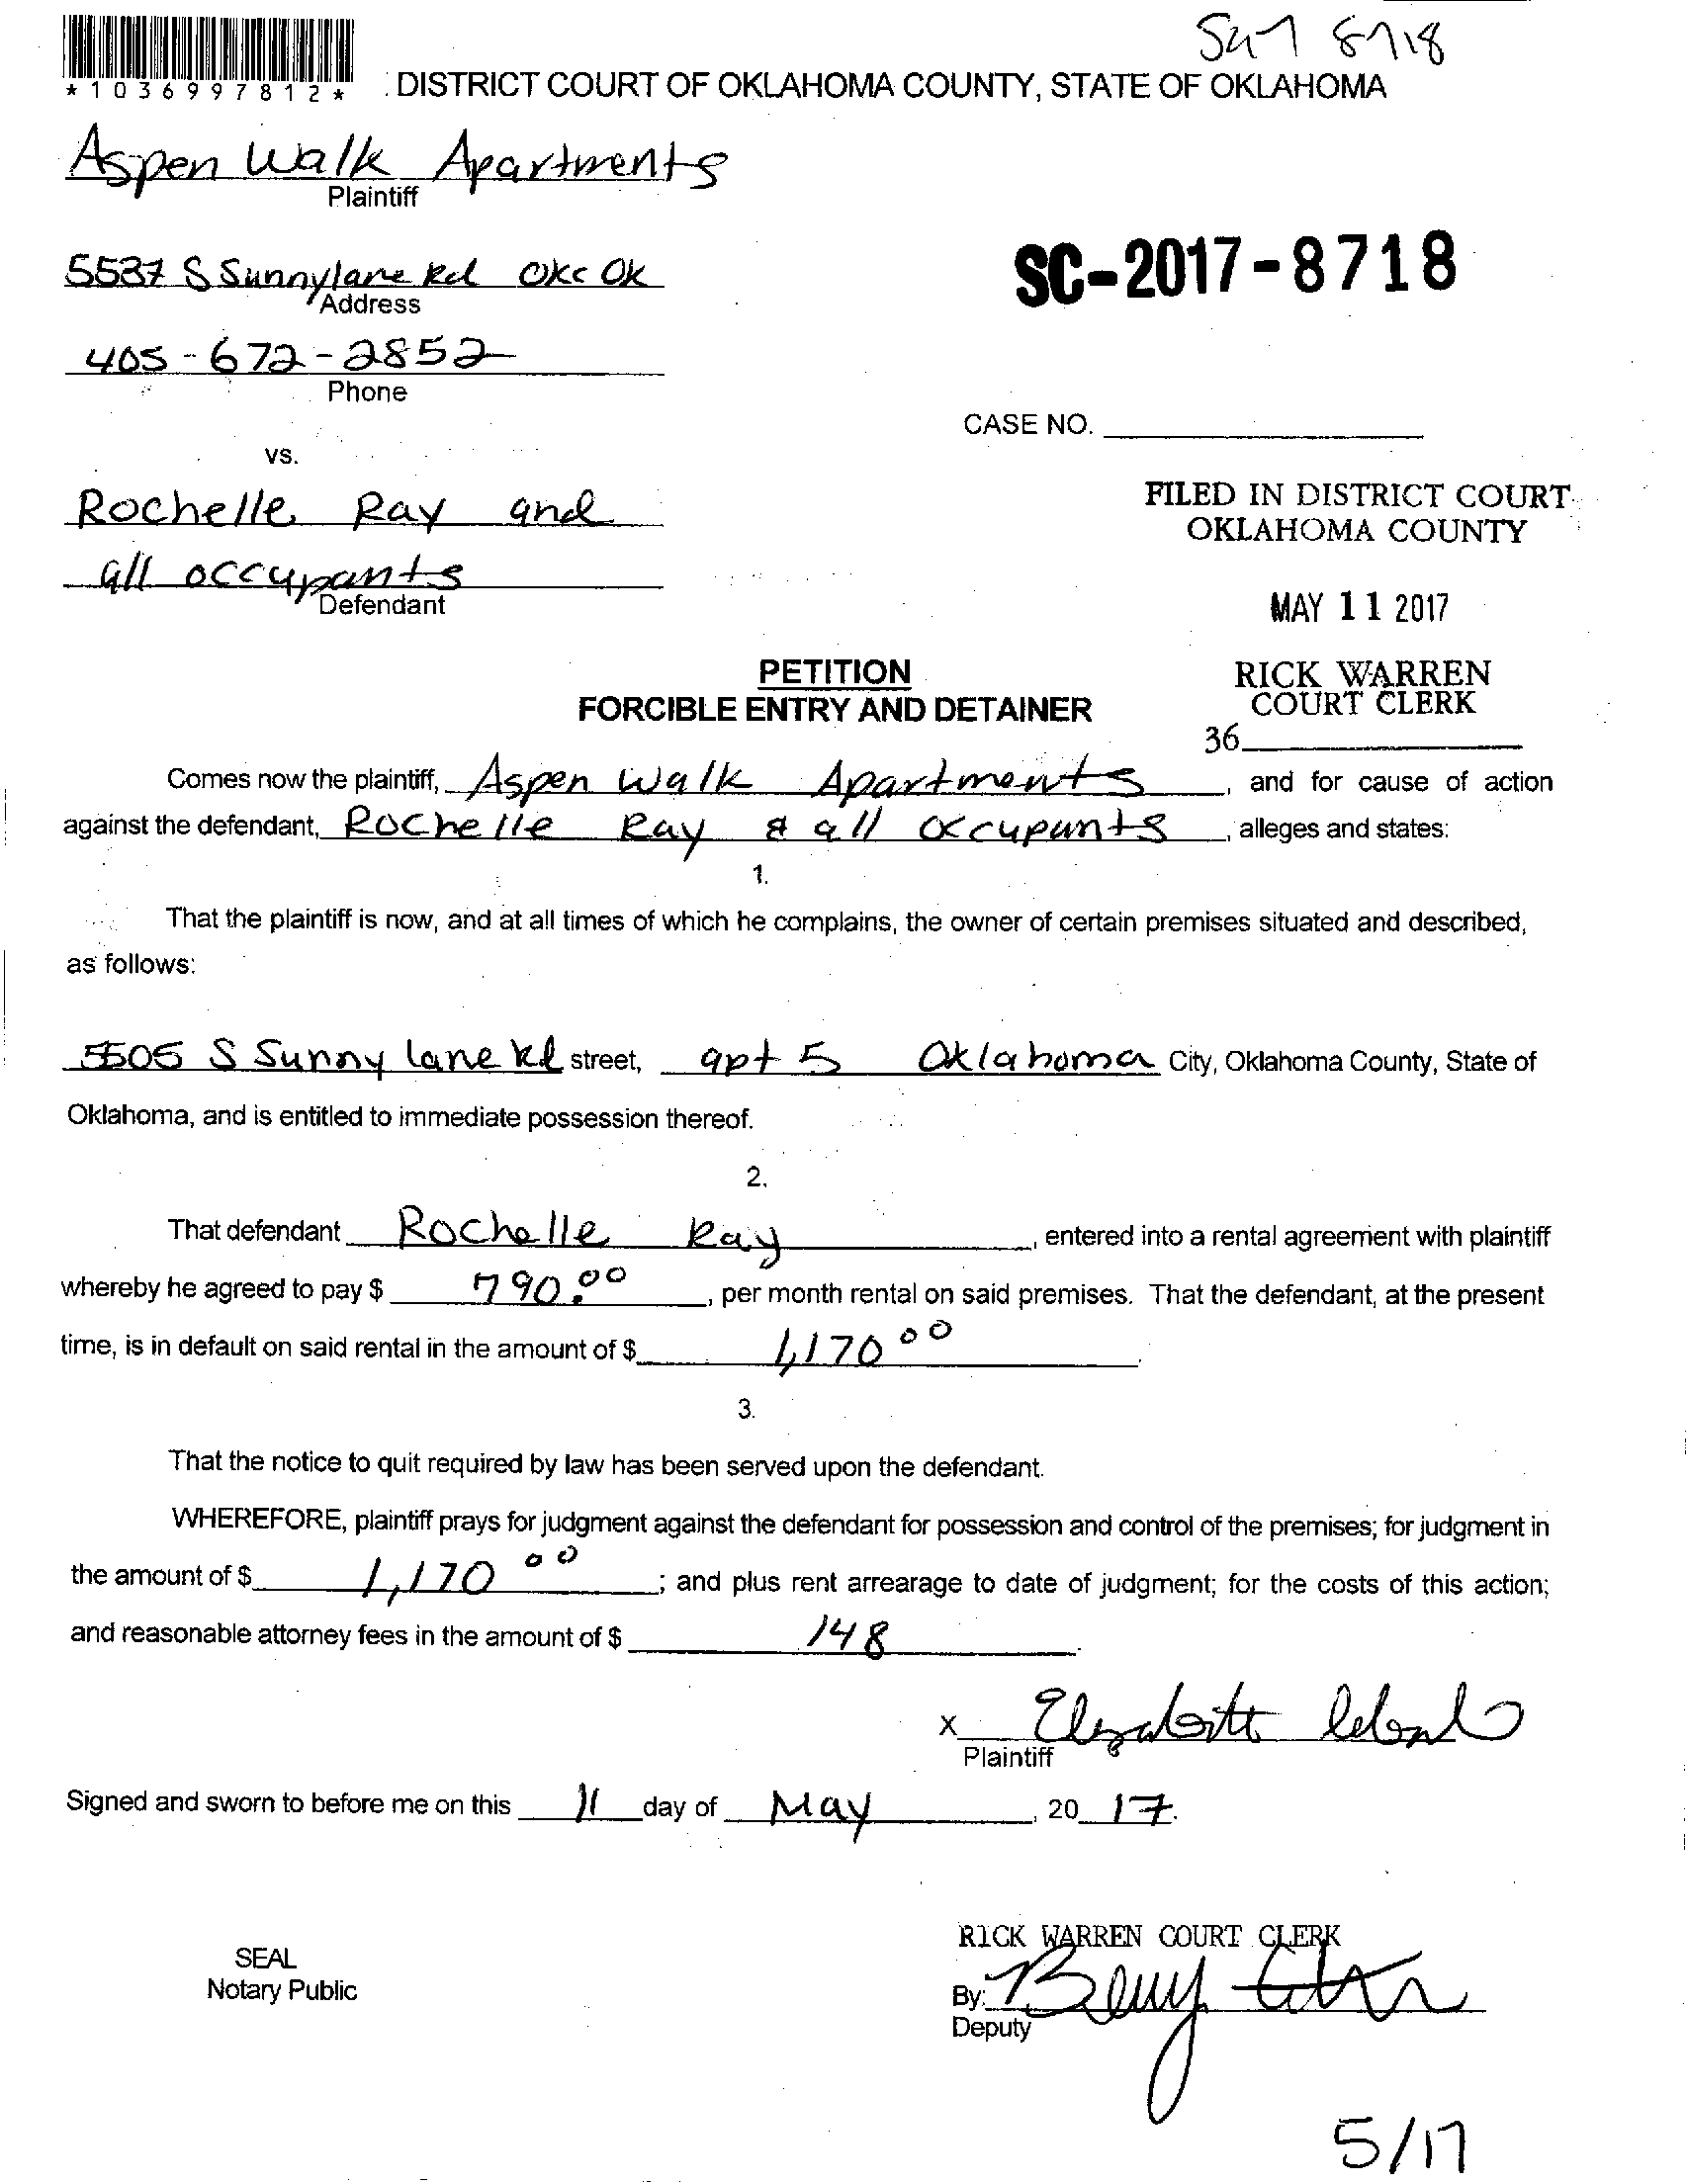 *1036997812*
DISTRICT COURT OF OKLAHOMA COUNTY, STATE OF OKLAHOMA
Aspen Walk Apartments
Plaintiff
5537 S Sunnylane Rd OKC OK
Address
SC-2017-8718
405-672-2852
Phone
CASE NO.
vs.
Rochelle Ray and
all occupants
Defendant
FILED IN DISTRICT COURT
OKLAHOMA COUNTY
MAY 11 2017
RICK WARREN
COURT CLERK
36
PETITION
FORCIBLE ENTRY AND DETAINER
Comes now the plaintiff, Aspen Walk Apartments, and for cause of action
against the defendant, Rochelle Ray & all occupants, alleges and states:
1.
That the plaintiff is now, and at all times of which he complains, the owner of certain premises situated and described,
as follows:
5505 S Sunny lane Rd street, apt 5 Oklahoma City, Oklahoma County, State of
Oklahoma, and is entitled to immediate possession thereof.
2.
That defendant Rochelle Ray, entered into a rental agreement with plaintiff
whereby he agreed to pay $ 790.00, per month rental on said premises. That the defendant, at the present
time, is in default on said rental in the amount of $ 1,170 00.
3.
That the notice to quit required by law has been served upon the defendant.
WHEREFORE, plaintiff prays for judgment against the defendant for possession and control of the premises; for judgment in
the amount of $ 1,170 00; and plus rent arrearage to date of judgment; for the costs of this action;
and reasonable attorney fees in the amount of $ 148.
x Elizabeth
Plaintiff
Signed and sworn to before me on this 11 day of May, 20 17.
SEAL
Notary Public
RICK WARREN COURT CLERK
By:
Deputy
5/17